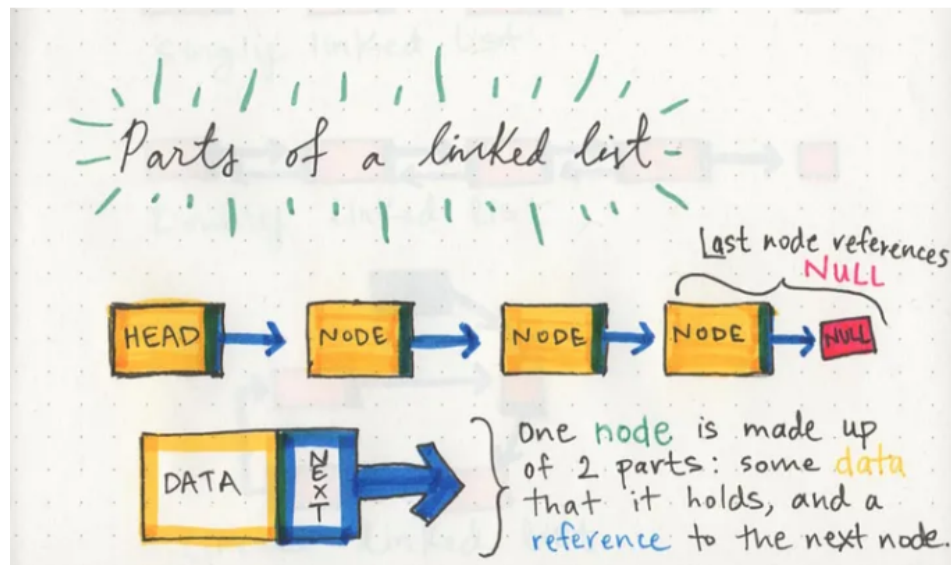 Parts of a linked list
Last node references
NULL
HEAD
NODE
NODE
NODE
NULL
DATA
NEXT
One node is made up
of 2 parts: some data
that it holds, and a
reference to the next node.